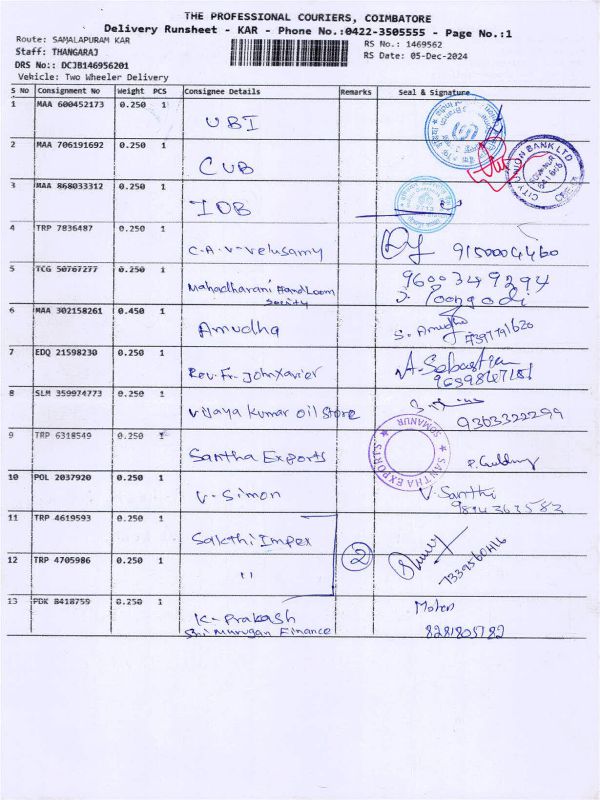 THE PROFESSIONAL COURIERS, COIMBATORE
Delivery Runsheet - KAR - Phone No.:0422-3505555 - Page No.:1
Route: SAMALAPURAM KAR
RS No.: 1469562
Staff: THANGARAJ
RS Date: 05-Dec-2024
DRS No:: DCJB146956201
Vehicle: Two Wheeler Delivery
S No Consignment No Weight PCS Consignee Details Remarks Seal & Signature
1 MAA 600452173 0.250 1 UBI
2 MAA 706191692 0.250 1 CUB CITY UNION BANK LTD
3 MAA 868033312 0.250 1 IOB
4 TRP 7836487 0.250 1 C.A.V-Velusamy
5 TCG 50767277 0.250 1 Mahadharani HandLoom 9600349294
Society J. Poongodi
6 MAA 302158261 0.450 1 Amudha S. Amudha
7 EDQ 21598230 0.250 1 Rev. Fr. John Xavier A. Sebastin
8 SLM 359974773 0.250 1 Vijaya kumar oil store 9363322299
9 TRP 6318549 0.250 1 Santha Exports SANTHA EXPORTS SOMANUR
10 POL 2037920 0.250 1 V. Simon V. Santhi
11 TRP 4619593 0.250 1 Sakthi Impex
12 TRP 4705986 0.250 1 " 2 7339560416
13 PDK 8418759 0.250 1 K-Prakash
Sri Murugan Finance